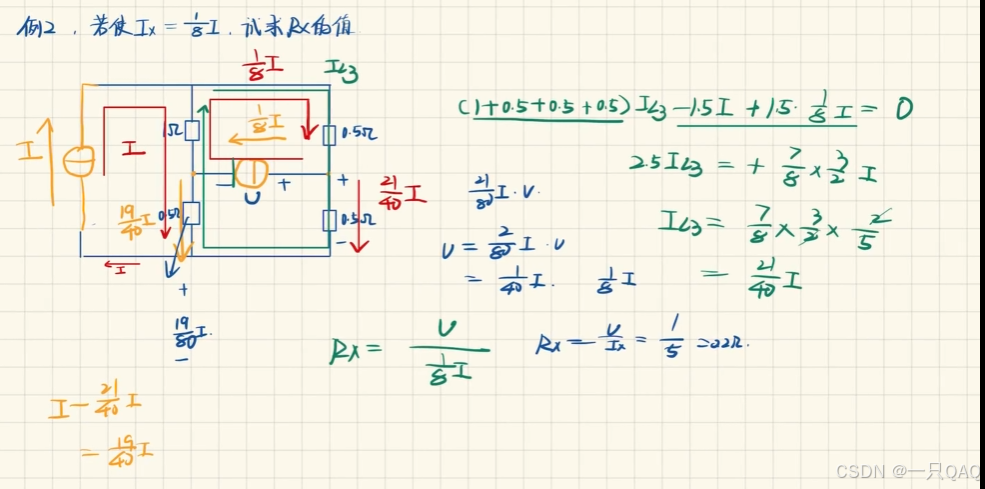 例2. 若使 Ix = 1/8 I. 试求 Rx的值
1/8 I
IL3
1Ω
1/8 I
0.5Ω
I
I
- U +
+
21/40 I
19/40 I
0.5Ω
0.5Ω
-
I
+
19/80 I.
-
(1+0.5+0.5+0.5) IL3 - 1.5I + 1.5 · 1/8 I = 0
2.5 IL3 = + 7/8 × 3/2 I
21/80 I · V.
IL3 = 7/8 × 3/2 × 2/5
U = 2/80 I · V
= 1/40 I. 1/8 I
= 21/40 I
Rx = U / (1/8 I)
Rx = U/Ix = 1/5 = 0.2Ω.
I - 21/40 I
= 19/40 I
CSDN @一只QAQ